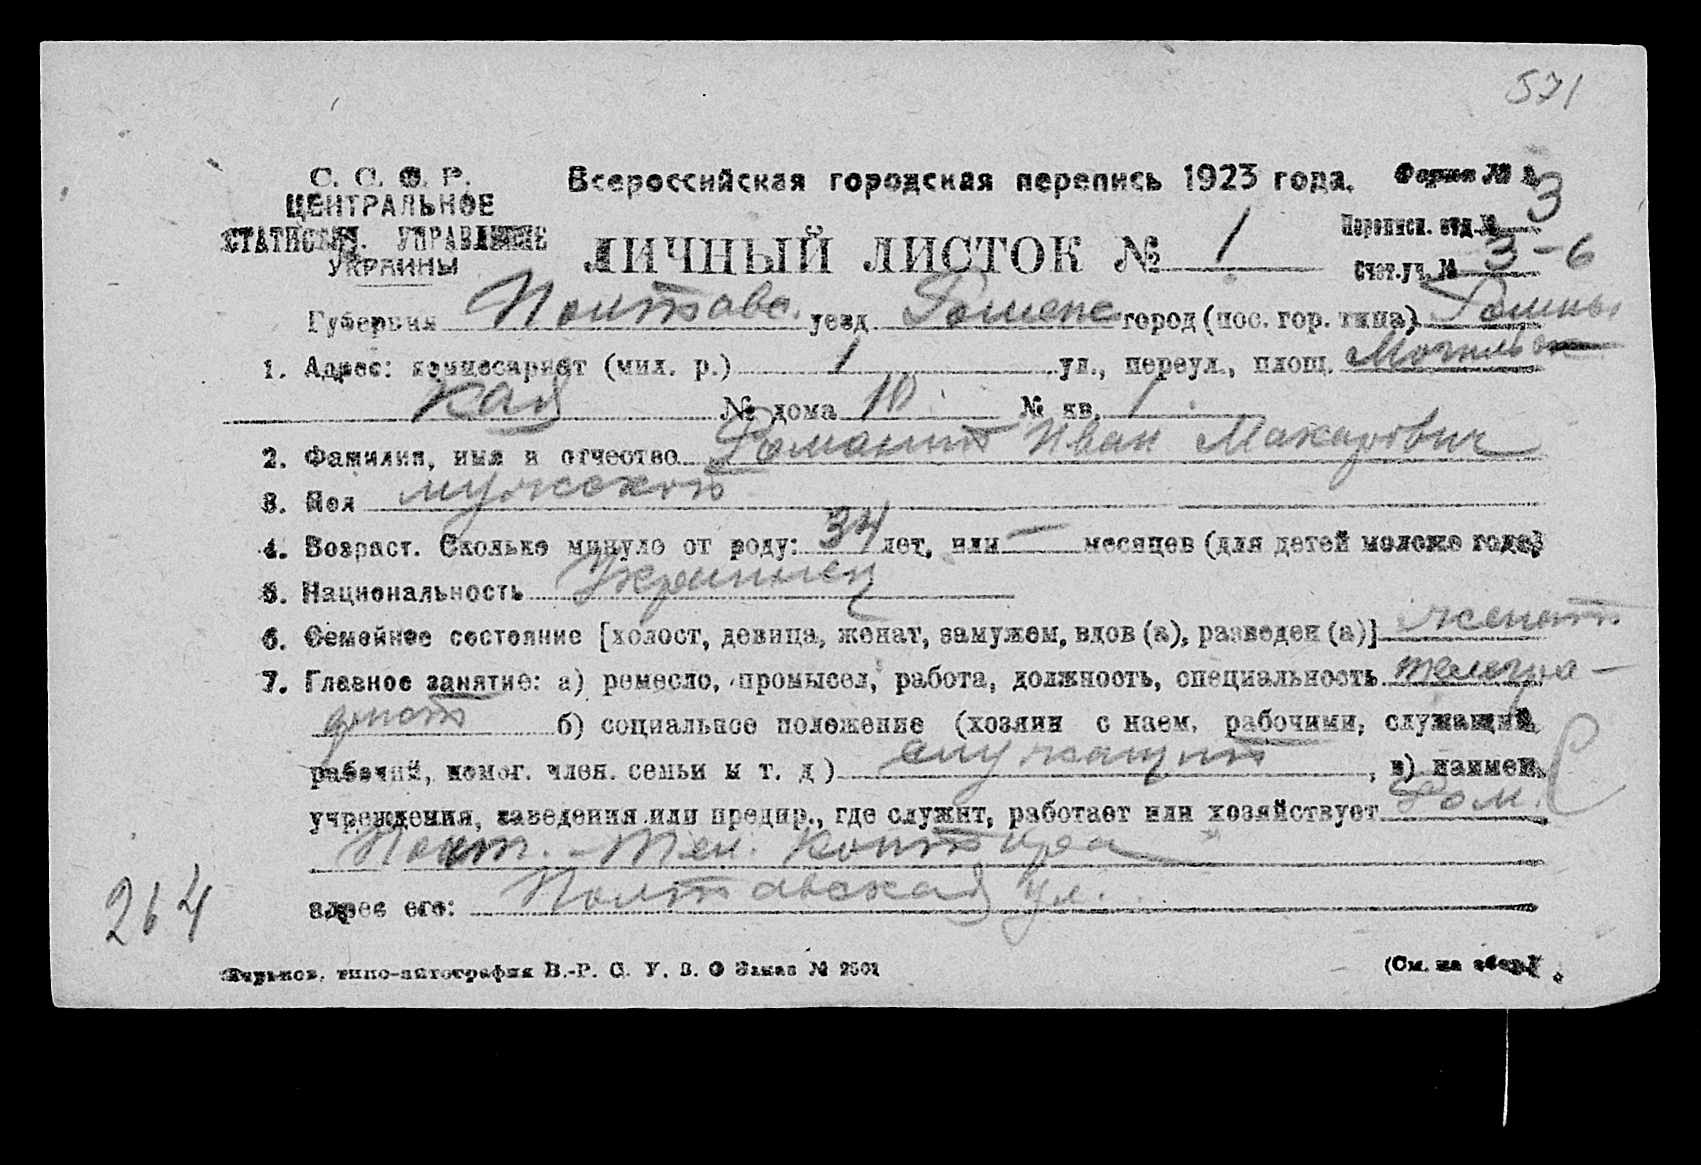 571
С. С. Ф. Р. Всероссийская городская перепись 1923 года. Форма № 3
ЦЕНТРАЛЬНОЕ
СТАТИСТИЧ. УПРАВЛЕНИЕ ЛИЧНЫЙ ЛИСТОК № 1 Переписн. отд. № 3
УКРАИНЫ Счет. уч. № 3-6
Губерния Полтавс. уезд Роменс город (пос. гор. типа) Ромны
1. Адрес: комиссариат (мил. р.) 1 ул., переул., площ.
кая № дома 10 № кв. 1
2. Фамилия, имя и отчество Иван Макарович
3. Пол мужской
4. Возраст. Сколько минуло от роду: 34 лет, или — месяцев (для детей моложе года)
5. Национальность Украинец
6. Семейное состояние [холост, девица, женат, замужем, вдов (а), разведен (а)] женат
7. Главное занятие: а) ремесло, промысел, работа, должность, специальность телегра-
фист б) социальное положение (хозяин с наем. рабочими, служащий,
рабочий, помог. член. семьи и т. д) служащий, в) наимен.
учреждения, заведения или предпр., где служит, работает или хозяйствует Ром.
Почт.-Тел. контора
адрес его: Полтавская ул.
264
Харьков, типо-литография В.-Р. С. У. В. О Заказ № (См. на обор.)